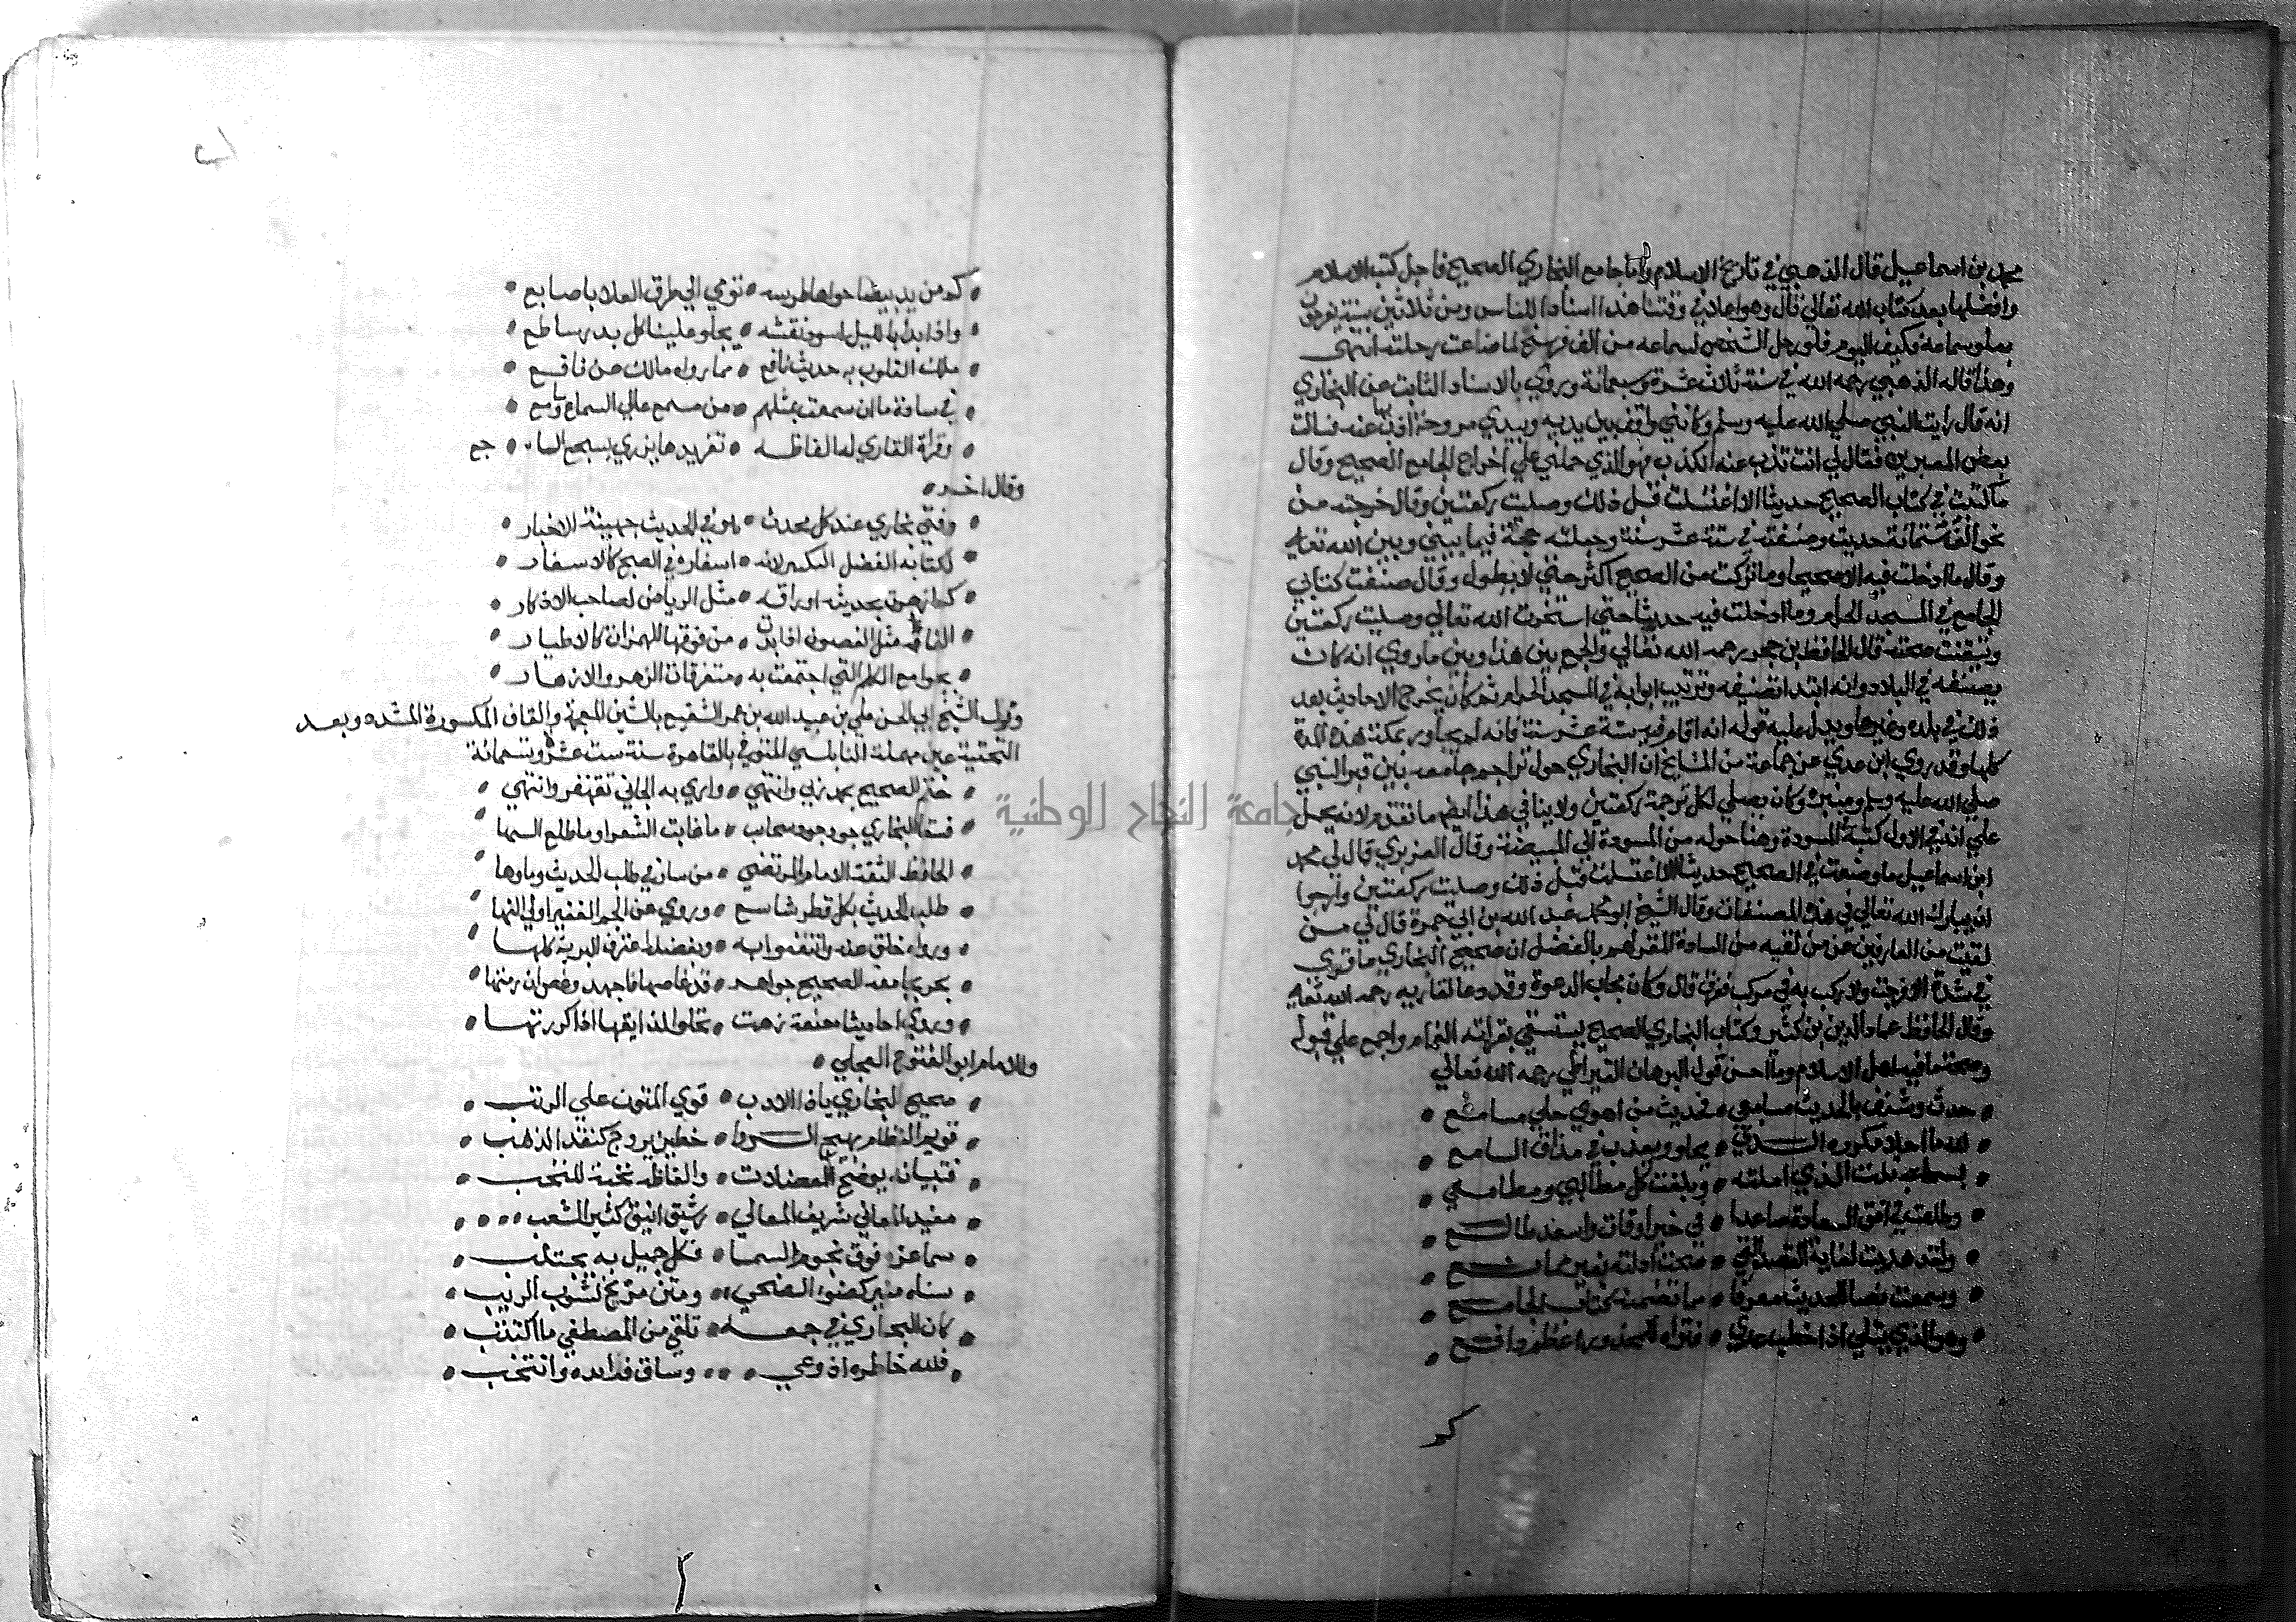 محمد بن اسماعيل قال الذهبي في تاريخ الاسلام واما جامع البخاري الصحيح فاجل كتب الاسلام
وافضلها بعد كتاب الله تعالى قال وهو اعلا في وقتنا هذا اسنادا للناس ومن ثلاثين سنة يفرحون
بعلو سماعه فكيف اليوم فلو رحل الشخص لسماعه من الف فرسخ لما ضاعت رحلته انتهى
وهذا قاله الذهبي رحمه الله في سنة ثلاث عشرة وسبعمائة وروي بالاسناد الثابت عن البخاري
انه قال رايت النبي صلي الله عليه وسلم وكانني واقف بين يديه وبيدي مروحة اذب بها عنه فسالت
بعض المعبرين فقال لي انت تذب عنه الكذب فهو الذي حملني علي اخراج الجامع الصحيح وقال
ما كتبت في كتاب الصحيح حديثا الا اغتسلت قبل ذلك وصليت ركعتين وقال خرجته من
نحو ستمائة حديث وصنفته في ستة عشر سنة وجعلته حجة فيما بيني وبين الله تعالي
وقال ما ادخلت فيه الا صحيحا وما تركت من الصحيح اكثر حتي لا يطول وقال صنفت كتابي
الجامع في المسجد الحرام وما ادخلت فيه حديثا حتي استخرت الله تعالي وصليت ركعتين
وتيقنت صحته قال الحافظ بن حجر رحمه الله تعالي والجمع بين هذا وبين ما روي انه كان
يصنفه في البلاد انه ابتدا تصنيفه وترتيب ابوابه في المسجد الحرام ثم كان يخرج الاحاديث بعد
ذلك في بلده وغيرها ويدل عليه قوله انه اقام فيه ستة عشر سنة فانه لم يجاور بمكة هذه المدة
كلها وقد روي ابن عدي عن جماعة من المشايخ ان البخاري حول تراجم جامعه بين قبر النبي
صلي الله عليه وسلم ومنبره وكان يصلي لكل ترجمة ركعتين ولا ينافي هذا ايضا ما تقدم لانه يحمل
علي انه في الاول كتبه المسودة وهنا حوله من المسودة الي المبيضة وقال الفربري قال لي محمد
ابن اسماعيل ما وضعت في الصحيح حديثا الا اغتسلت قبل ذلك وصليت ركعتين وارجوا
ان يبارك الله تعالي في هذه المصنفات وقال الشيخ ابو محمد عبد الله بن ابي جمرة قال لي من
لقيت من العارفين عن من لقيه من السادة المقر لهم بالفضل ان صحيح البخاري ما قري
في شدة الا فرجت ولا ركب به في مركب فغرق قال وكان مجاب الدعوة وقد دعا لقاريه رحمه الله تعالي
وقال الحافظ عماد الدين بن كثير وكتاب البخاري الصحيح يستسقي بقراته الغمام واجمع علي قبوله
وصحة ما فيه اهل الاسلام وما احسن قول البرهان القيراطي رحمه الله تعالي
حدث وشنف بالحديث مسامعي • فحديث من اهوي حلي مسامعي
لله ما احلا مكرره الذي • يحلو ويعذب في مذاق السامع
بسماعه نلت الذي املته • وبلغت كل مطالبي ومطامعي
وطلعت في افق السعادة صاعدا • في خير اوقات واسعد طالع
ولقد هديت لغاية القصد التي • صحت ادلته بغير ممانع
وسمعت نصا للحديث معرفا • مما تضمنه كتاب الجامع
وهو الذي يتلي اذا خطب عري • فتراه للمحذور اعظم دافع
كم
كم من يد بيضا حواها طرسه • تومي الي طرق العلا باصابع
واذا بدا بالليل اسود نقشه • يجلو علينا كل بدر ساطع
ملك القلوب به حديث نافع • مما رواه مالك عن نافع
في سادة ما ان سمعت بمثلهم • من مسمع عالي السماع وسامع
وقراة القاري له الفاظه • تغريدها يزري بسجع الساجع
وقال اخر
وفتي بخاري عند كل محدث • هو في الحديث جهينة الاخبار
لكتابه الفضل الكبير لانه • اسفاره في الصبح كالاسفار
كم ازهرت بحديثه اوراقه • مثل الرياض لصاحب الاذكار
الفاته مثل الغصون اذا بدت • من فوقها الهمزات كالاطيار
بجوامع الكلم التي اجتمعت به • متفرقات الزهر والازهار
وقول الشيخ ابي الحسن علي بن عبيد الله بن عمر الشقيع بالشين المعجمة والقاف المكسورة المشدده وبعد
التحتية عين مهملة النابلسي المتوفي بالقاهرة سنة ست عشرة وتسعمائة
ختم الصحيح بحمد ربي وانتهي • واري به الجاني تقهقر وانتهي
فسقا البخاري جود جود سحائب • ما غابت الشعرا وما طلع السها
الحافظ الثقة الامام المرتضي • من سار في طلب الحديث وما وها
طلب الحديث بكل قطر شاسع • وروي عن الجم الغفير اولي النها
ورواه خلق عنه وانتفعوا به • وبفضله اعترف البرية كلها
بحر بجامعه الصحيح جواهر • قد غاصها فاجهد وغص ان رمتها
وروي احاديثا معنعة زهت • تحلو لذايقها اذا كررتها
وللامام ابو الفتوح العجلي
صحيح البخاري يا ذا الادب • قوي المتون علي الرتب
قويم النظام بهيج الروا • خطير يروج كنقد الذهب
فتبيانه يوضح المعضلات • والفاظه نخبة للنخب
مفيد المعاني شريف المعالي • رشيق انيق كثير الشعب
سما عزه فوق نجوم السما • فكل جميل به يجتلب
سناه منير كضوء الضحي • ومتن مزيح لشوب الريب
كان البخاري في جمعه • تلقي من المصطفي ما اكتتب
فلله خاطره اذ وعي • وساق فرايده وانتخب
جامعة النجاح الوطنية